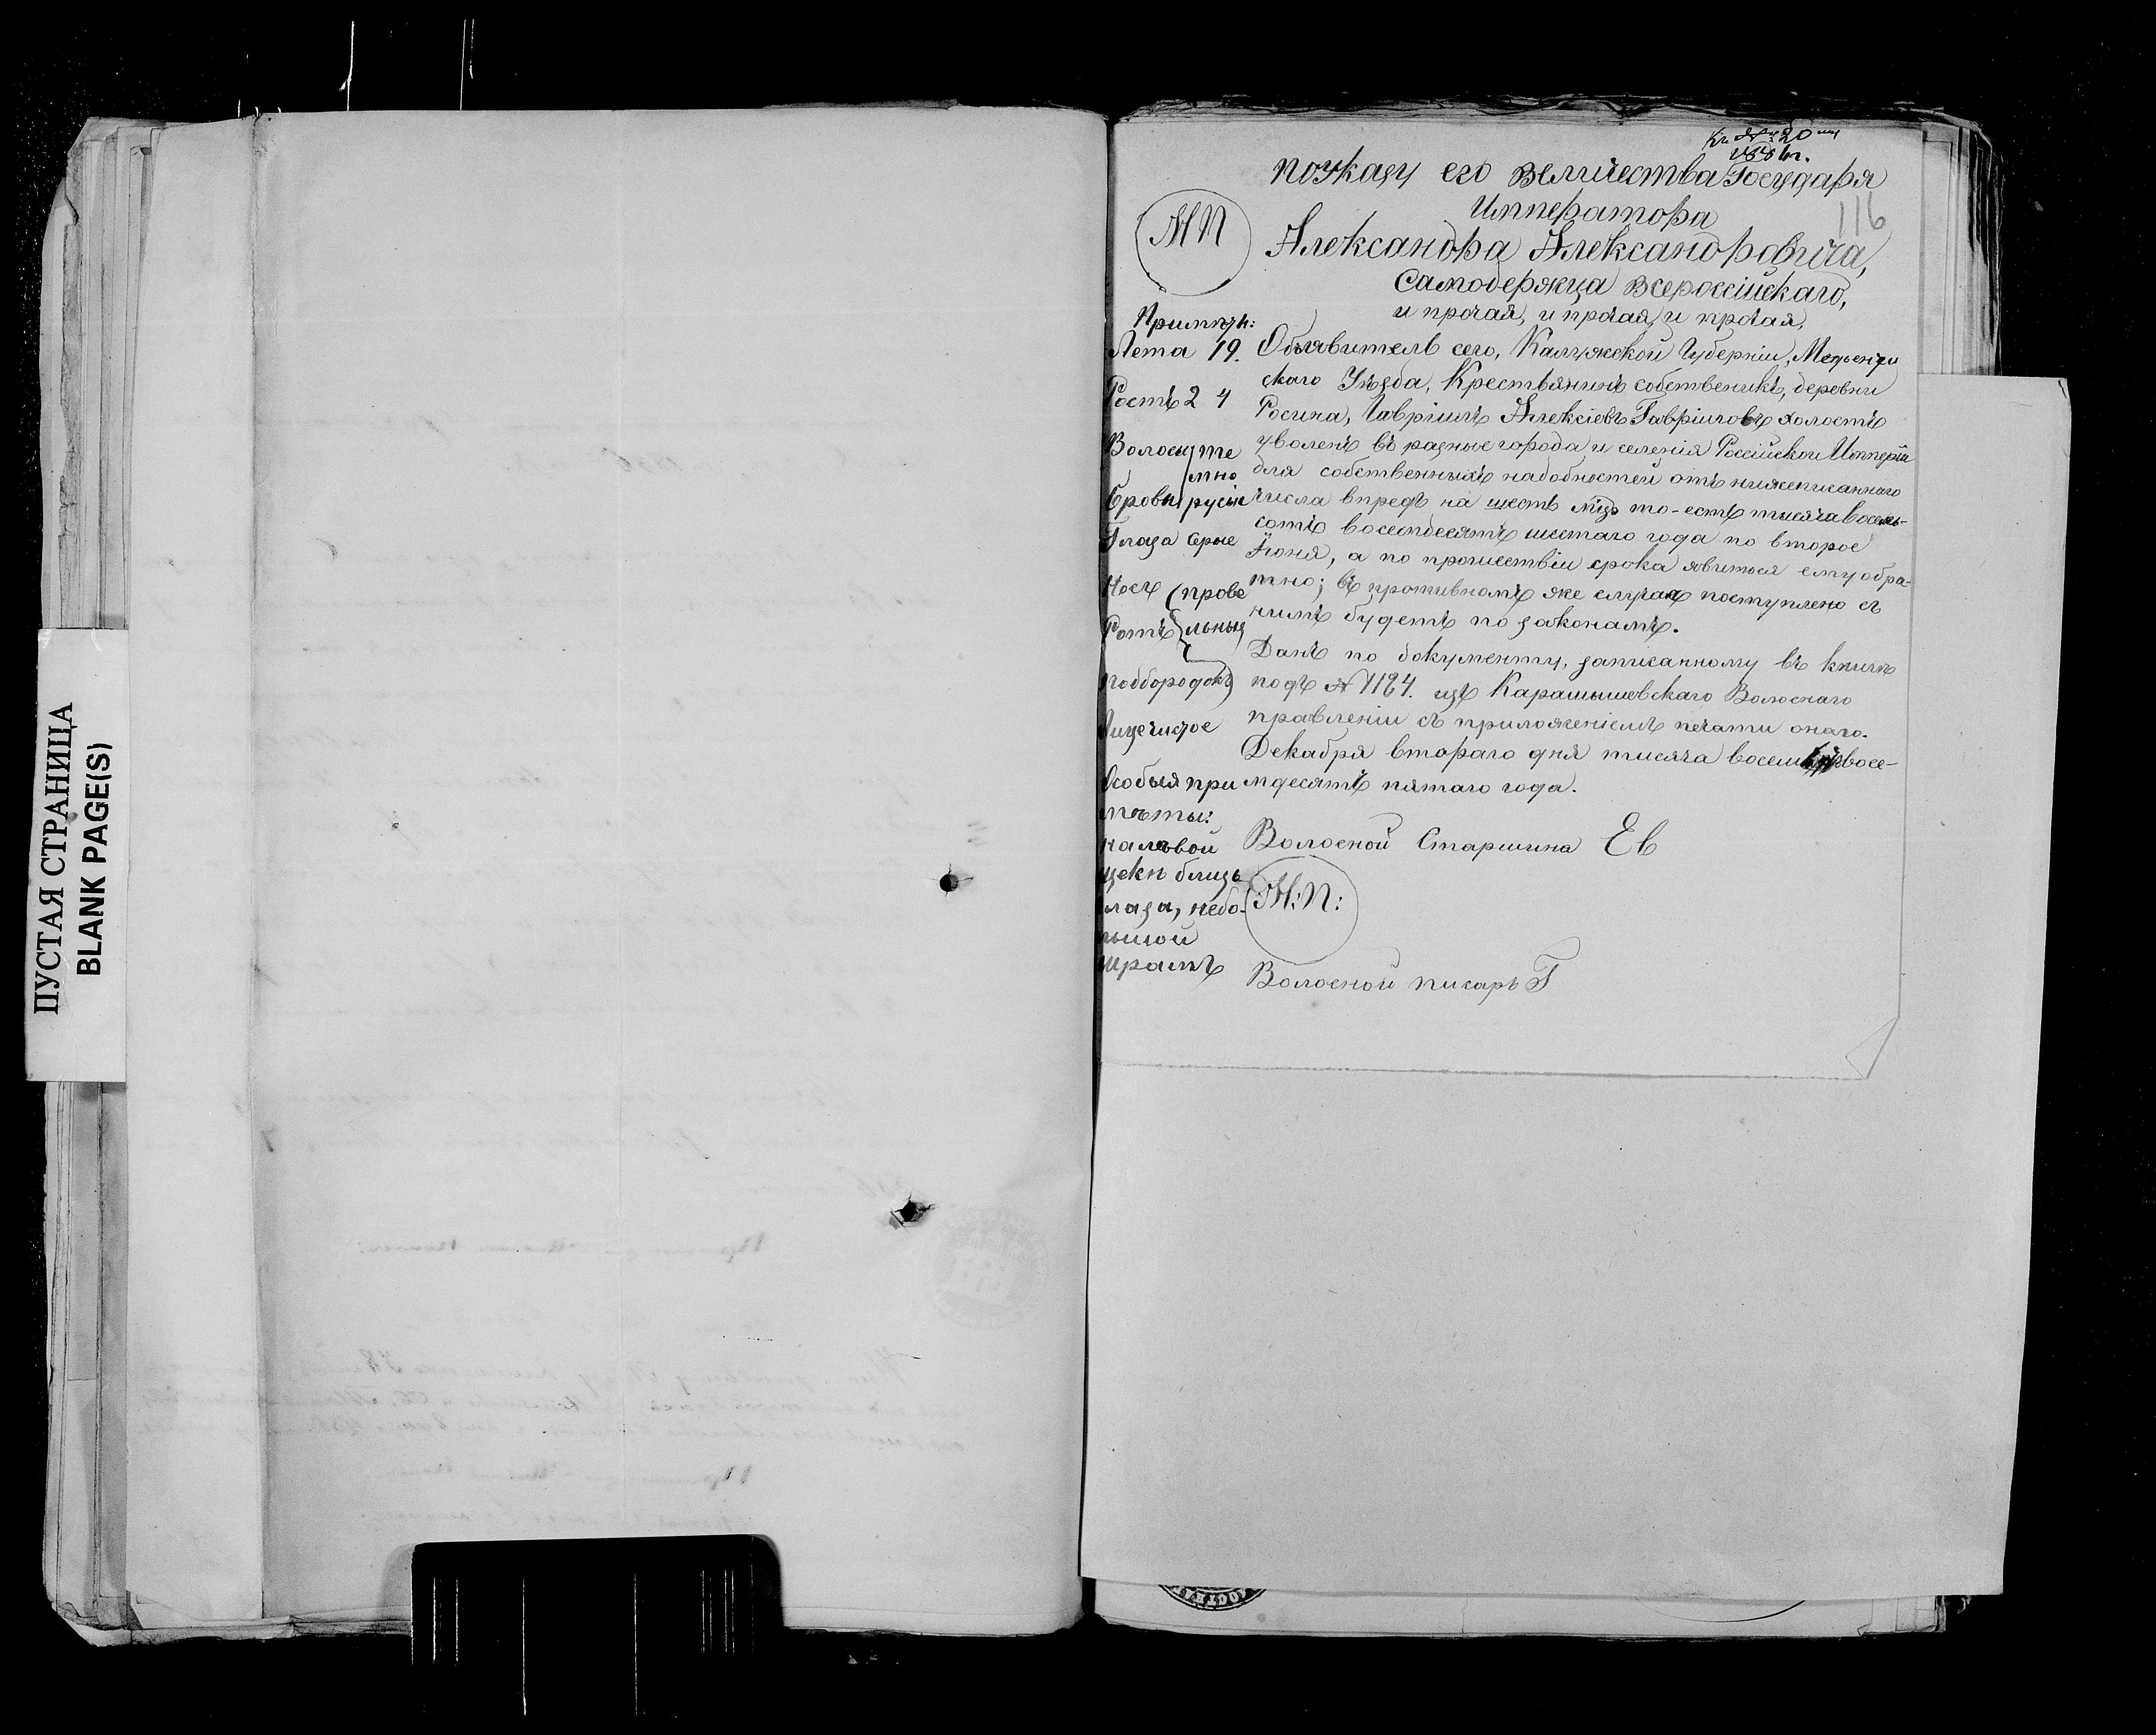 ПУСТАЯ СТРАНИЦА
BLANK PAGE(S)
20
116
по указу его величества Государя
Императора
Александра Александровича,
Самодержца всероссійскаго,
и прочая, и прочая, и прочая,
МП
Примѣты:
Лета 19.
Ростъ 2 4
Волосы те
мно
Бровы русые
Глаза серые
Носъ прове
Ротъ льный
подбородокъ
Лице чистое
Особыя при
меты:
на левой
щеке близь
глаза, небо-
льшой
шрамъ
Объявитель сего, Калужской Губерніи, Медынь
скаго Уѣзда, Крестьянинъ собственикъ, деревни
Росина, Гавріилъ Алексѣевъ Гавріиловъ холостъ
уволенъ въ разные города и селенія Россійской Имперіи
для собственныхъ надобностей отъ нижеписаннаго
числа впредъ на шесть мцъ то-есть тысяча восемь-
сотъ восемдесятъ шестаго года по второе
Іюня, а по прошествіи срока явиться ему обра-
тно; въ противномъ же случаѣ поступлено съ
нимъ будетъ по законамъ.
Данъ по документу, записанному въ книгѣ
подъ № 1184. изъ Карамышевскаго Волоснаго
правленіи съ приложеніемъ печати онаго.
Декабря втораго дня тысяча восемь восе-
мдесятъ пятаго года.
Волосной Старшина Ев
М:П:
Волосной писарь Г